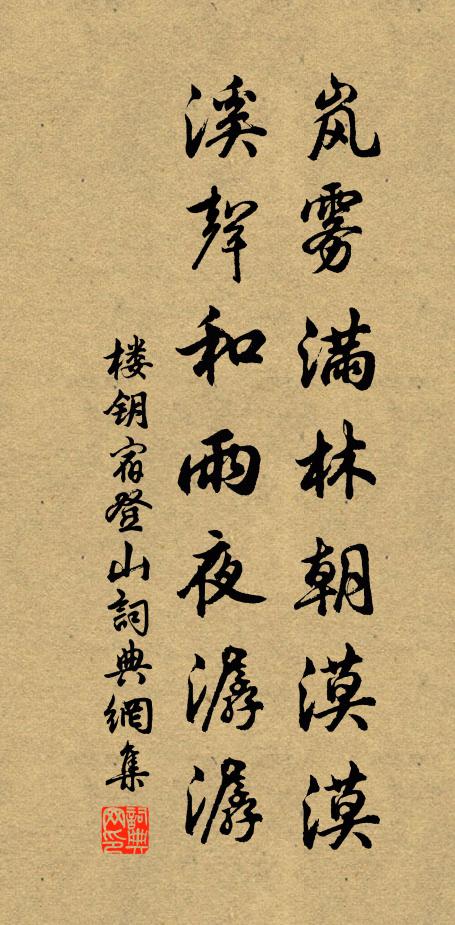 岚雾满林朝漠漠
溪聲和雨夜潺潺
楼钥宿登山詞典網集
詞典网印